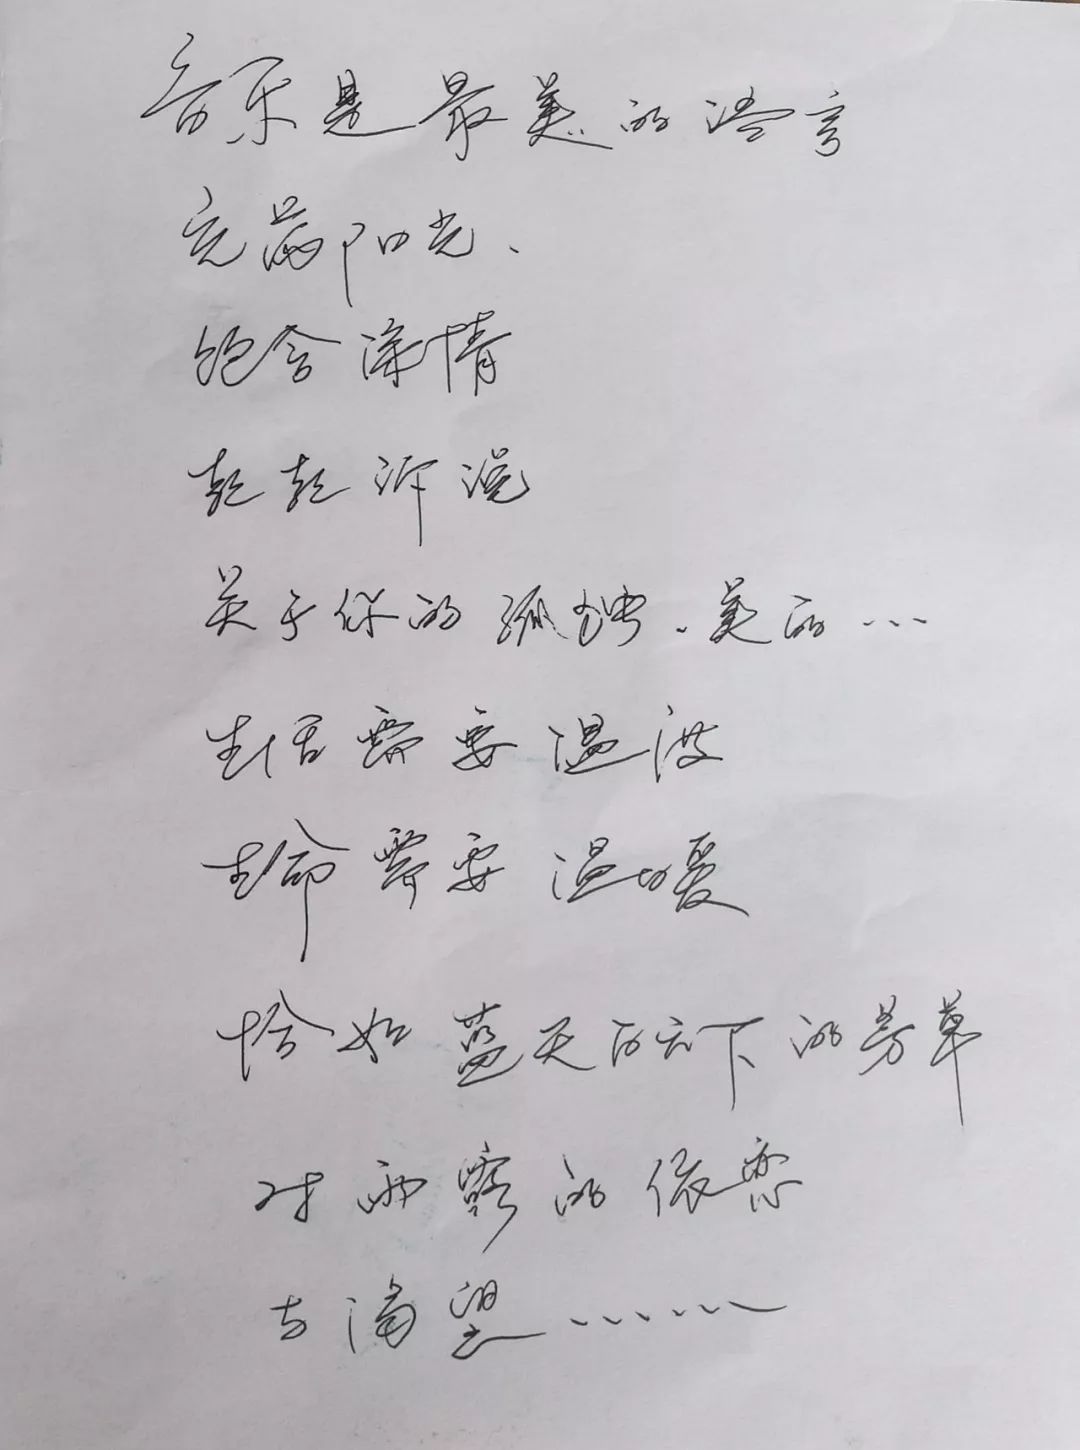 音乐是最美的语言
充满阳光、
饱含深情
轻轻诉说
关于你的孤独、美的…
生活需要温波
生命需要温暖
恰如蓝天白云下的芳草
对雨露的依恋
与渴望……